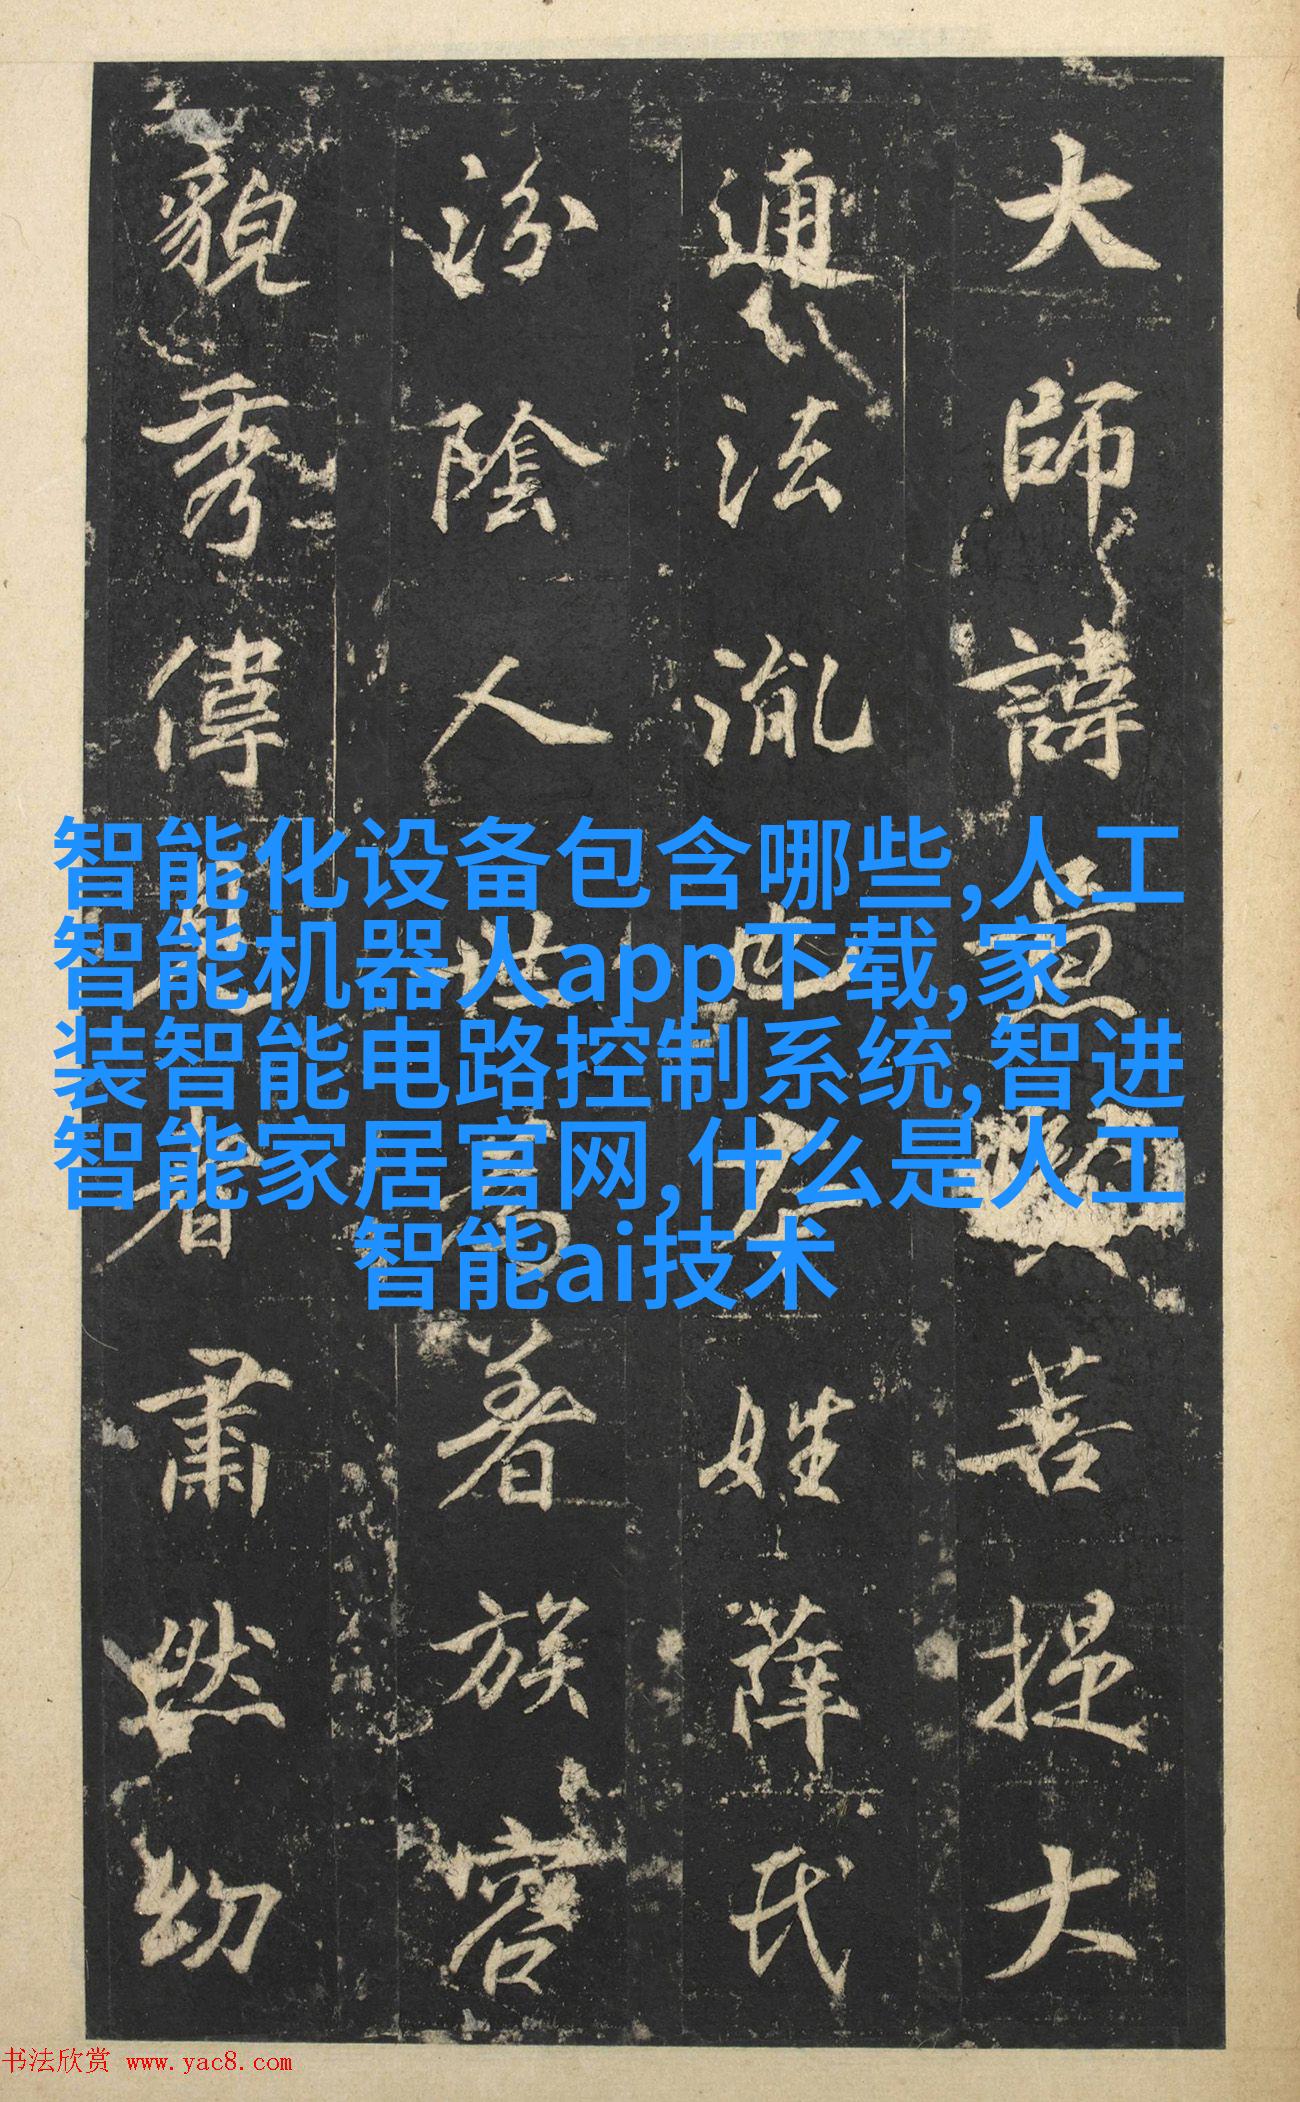 大師諱景菩提大
通法胤也本姓薛氏
汾陰人世為著族容
貌秀偉見者肅然幼
智能化设备包含哪些,人工
智能机器人app下载,家
装智能电路控制系统,智进
智能家居官网,什么是人工
智能ai技术
书法欣赏 www.yac8.com